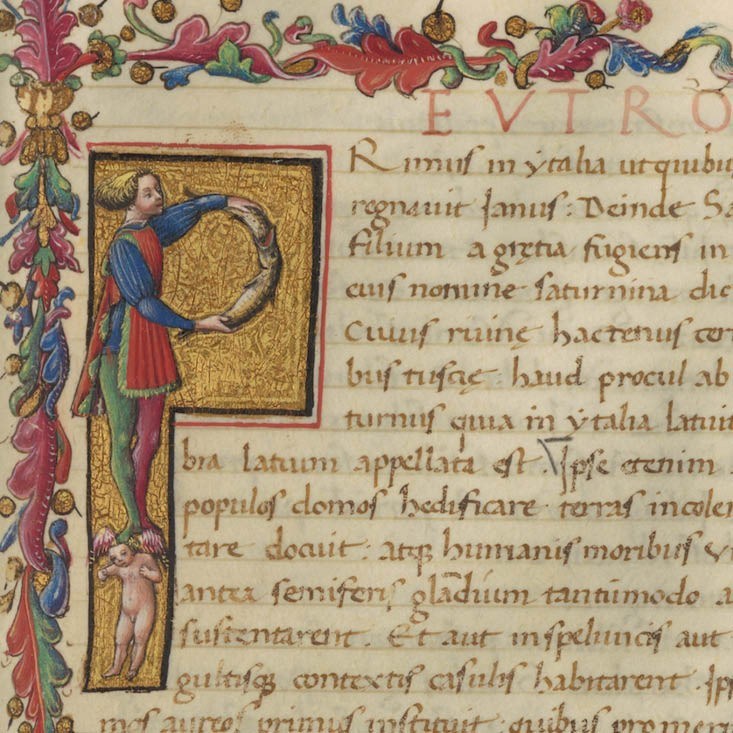 EVTRO
PRimus in ytalia ut quibu
regnauit Janus: Deinde Sa
filium a gretia fugiens in
cuis nomine saturnina dic
Cuius ruinę hactenus cer
bus tuscię haud procul ab
turnus quia in ytalia latuit
bra latium appellata est. Ipse etenim
populos domos hedificare terras incoler
tare docuit: atqꝫ humanis moribus vi
antea semiferis glādium tantūmodo a
sustentarent. Et aut in speluncis aut
gultisqꝫ contextis casulis habitarent. Ip
mos aureos primus instituit: quibus promeri